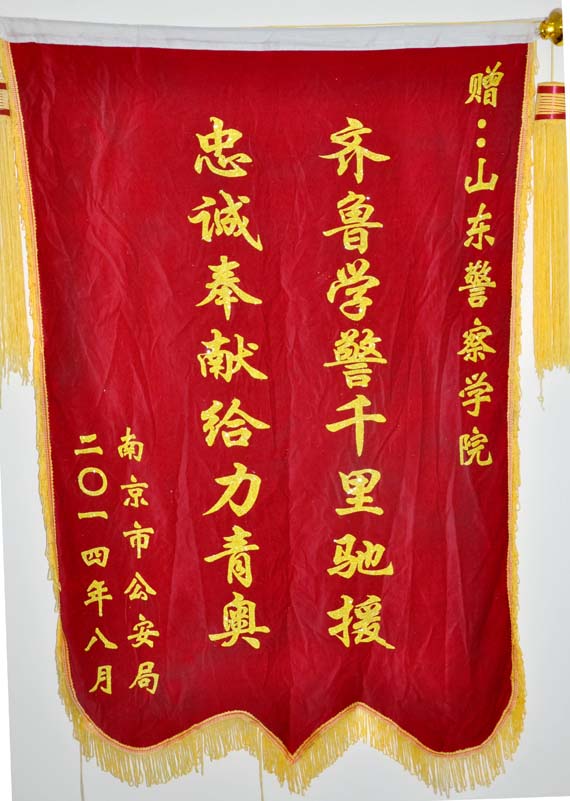 赠：山东警察学院
齐鲁学警千里驰援
忠诚奉献给力青奥
南京市公安局
二〇一四年八月